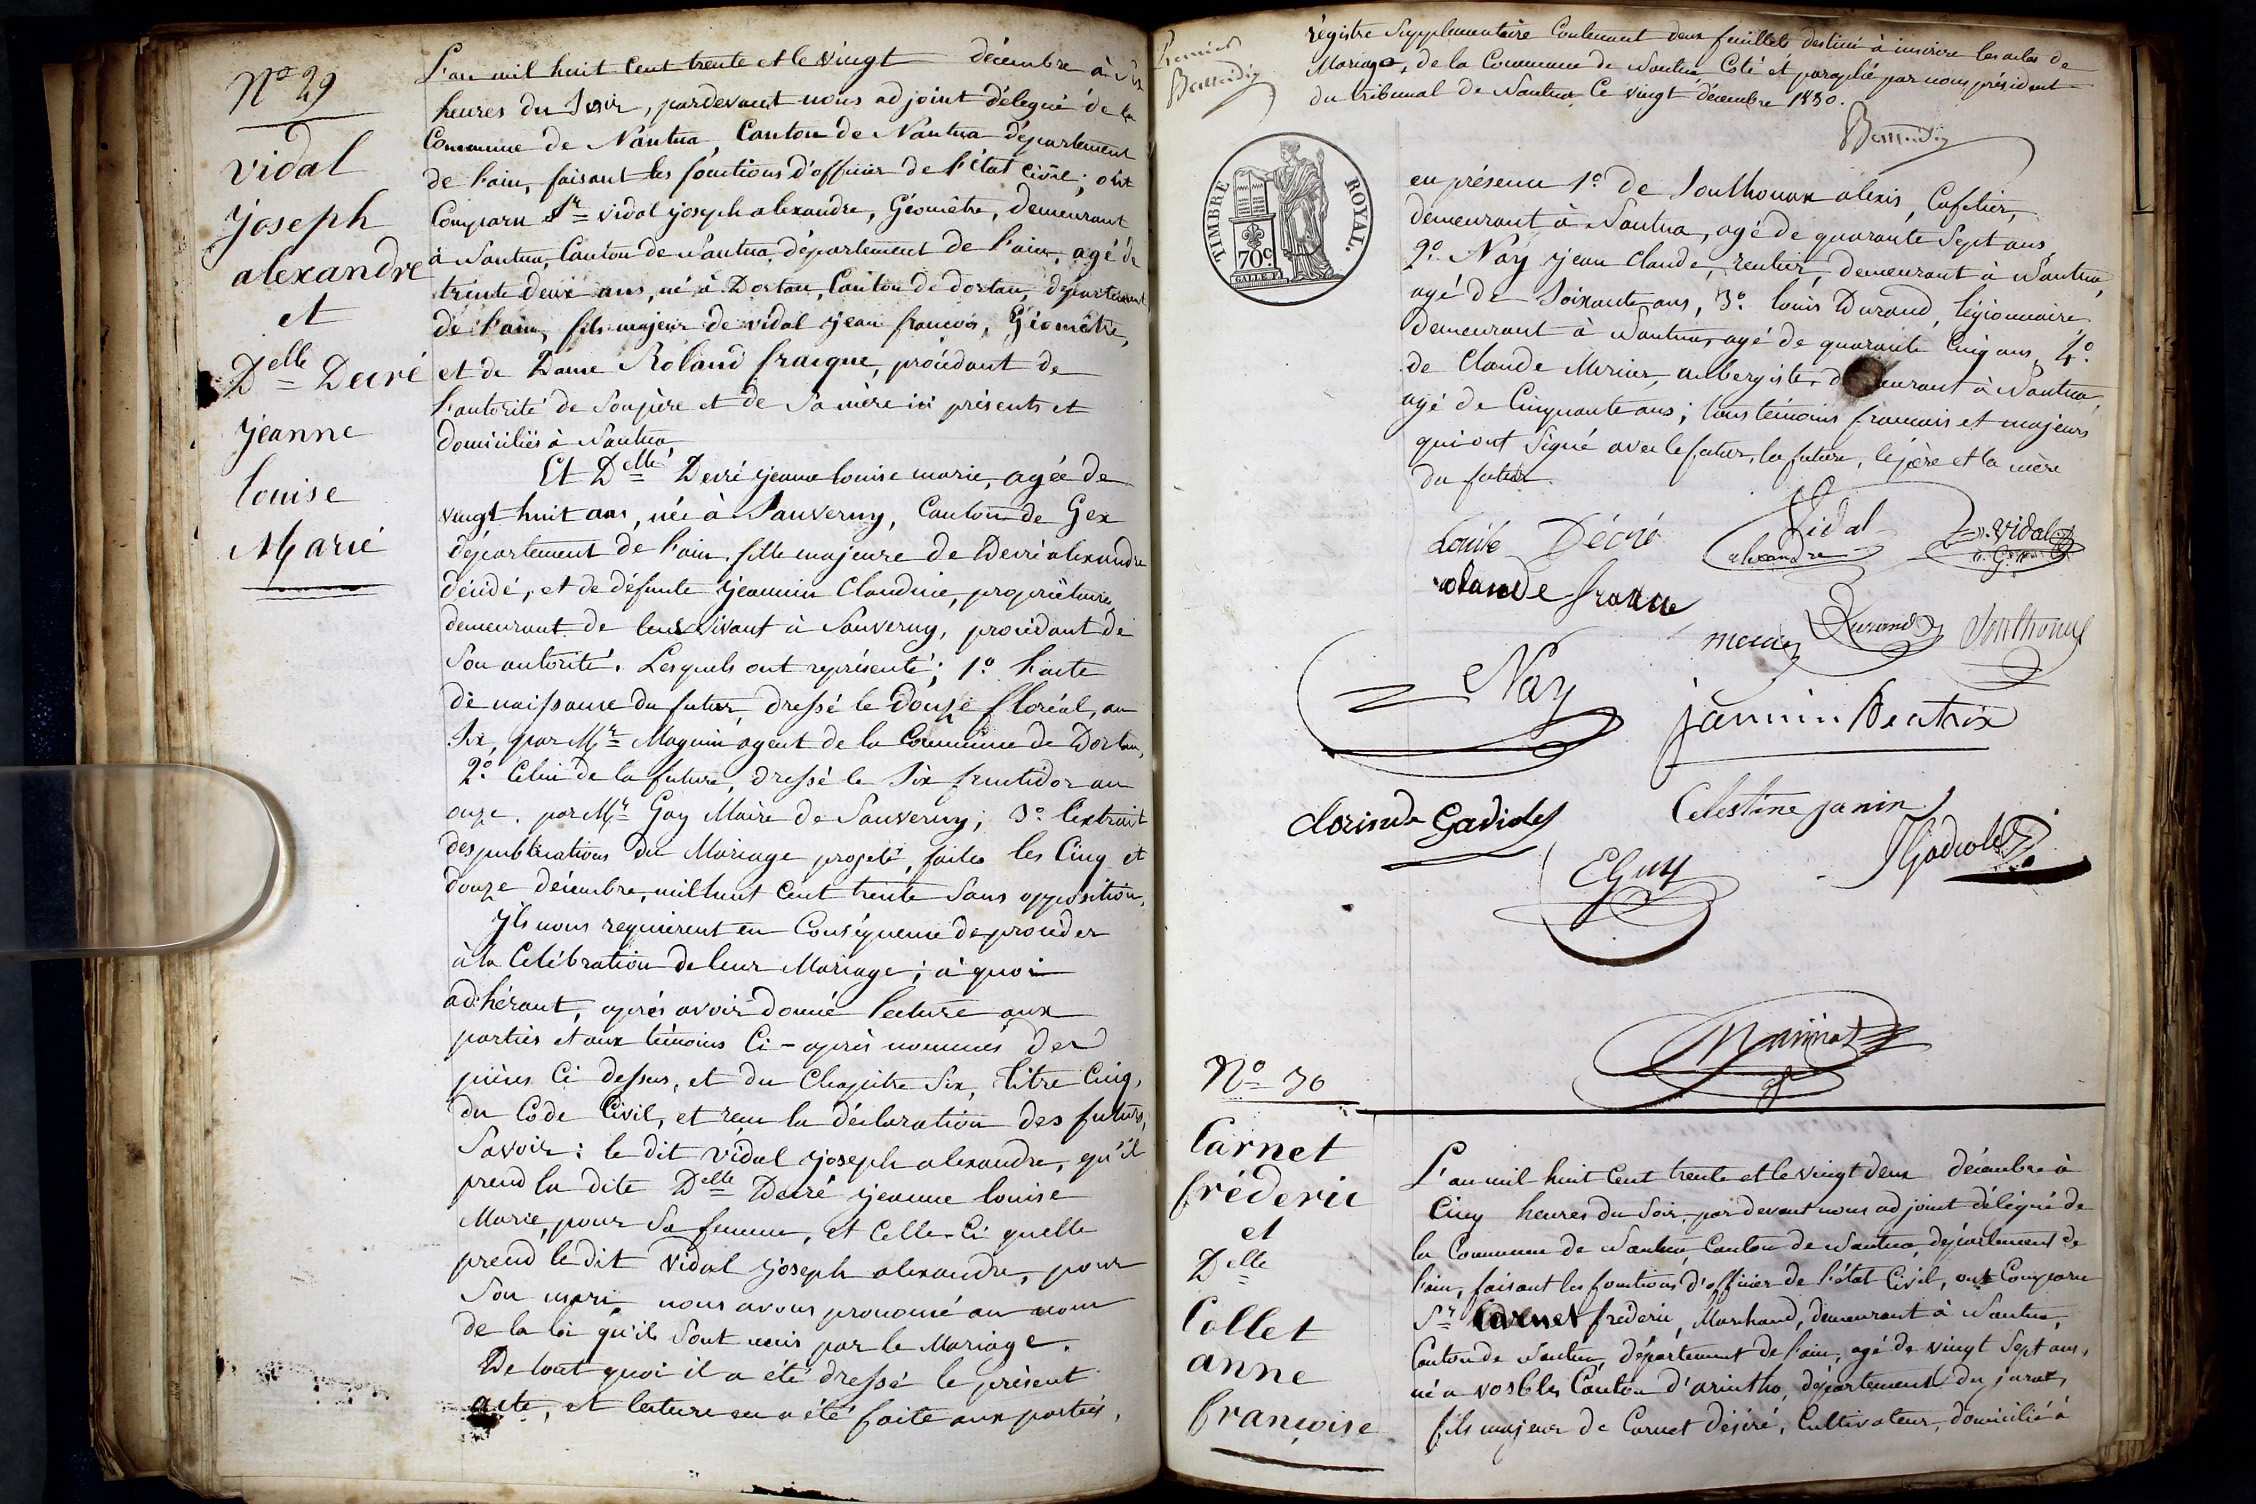 N.o 29
vidal
joseph
alexandre
et
Delle Decré
jeanne
louise
Marie
L'an mil huit Cent trente et le vingt décembre à dix
heures du Soir, pardevant nous adjoint délegué de la
Commune de Nantua, Canton de Nantua département
de l'ain, faisant les fonctions d'officier de l'état Civil; ont
Comparu Sr vidal joseph alexandre, Géomètre, demeurant
à Nantua, Canton de Nantua, département de l'ain, agé de
trente deux ans, né à Dortan, Canton de dortan, département
de l'ain, fils majeur de vidal jean francois, Géomètre,
et de Dame Roland franque, procédant de
l'autorité de Son père et de Sa mère ici présents et
domiciliés à Nantua
Et Delle Decré jeanne louise marie, agée de
vingt huit ans, née à Sauverny, Canton de Gex
département de l'ain, fille majeure de Decré alexandre
décédé, et de défunte jeannin Claudine, propriétaires
demeurant de leur vivant à Sauverny, procédant de
Son autorité. Lesquels ont représenté; 1.o l'acte
de naissance du futur, dressé le douze floréal, an
Six, par Mr Maguin agent de la Commune de Dortan,
2.o Celui de la future, dressé le Six fructidor an
onze, par Mr Gay Maire de Sauverny; 3.o l'extrait
des publications du Mariage projeté, faites les Cinq et
douze décembre, mil huit Cent trente Sans opposition.
Ils nous requièrent en Conséquence de procéder
à la Célébration de leur Mariage; à quoi
adhérant, après avoir donné lecture aux
parties et aux témoins Ci-après nommés des
pièces Ci dessus, et du Chapitre Six, titre Cinq,
du Code Civil, et reçu la déclaration des futurs,
Savoir: le dit vidal joseph alexandre, qu'il
prend la dite Delle Decré jeanne louise
Marie, pour Sa femme, et Celle-Ci quelle
prend le dit vidal joseph alexandre, pour
Son mari, nous avons prononcé au nom
de la loi qu'ils Sont unis par le Mariage.
De tout quoi il a été dressé le présent
acte, et lecture en a été faite aux parties,
Premier
régistre Supplementaire Contenant deux feuillets destiné à inscrire les actes de
Mariage, de la Commune de Nantua Coté et paraphé par nous président
du tribunal de Nantua Ce vingt décembre 1830.
TIMBRE ROYAL.
70c.
en présence 1.o de Southonax alexis, Cafetier,
demeurant à Nantua, agé de quarante Sept ans
2.o Nay jean Claude, rentier, demeurant à Nantua,
agé de Soixante ans, 3.o louis Durand, légionnaire
demeurant à Nantua, agé de quarante Cinq ans, 4.o
de Claude Mercier, aubergiste, demeurant à Nantua,
agé de Cinquante ans; tous témoins francais et majeurs
qui ont Signé avec le futur, la future, le père et la mère
du futur
Louise Décré
Vidal
alexandre
Vidal
rolande franque
Durand
Southonax
Nay
jannin Béatrix
Clorinde Gadiolet
Celestine janin
EGuy
Gadiolet
N.o 30
Carnet
fréderic
et
Delle
Collet
anne
françoise
L'an mil huit Cent trente et le vingt deux décembre à
Cinq heures du Soir, par devant nous adjoint délégué de
la Commune de Nantua, Canton de Nantua, département de
l'ain, faisant les fonctions d'officier de l'état Civil, ont Comparu
Sr Carnet frederic, Marchand, demeurant à Nantua,
Canton de Nantua, département de l'ain, agé de vingt Sept ans,
né a vosbles Canton d'arintho, département du jura,
fils majeur de Carnet désiré, Cultivateur, domicilié à